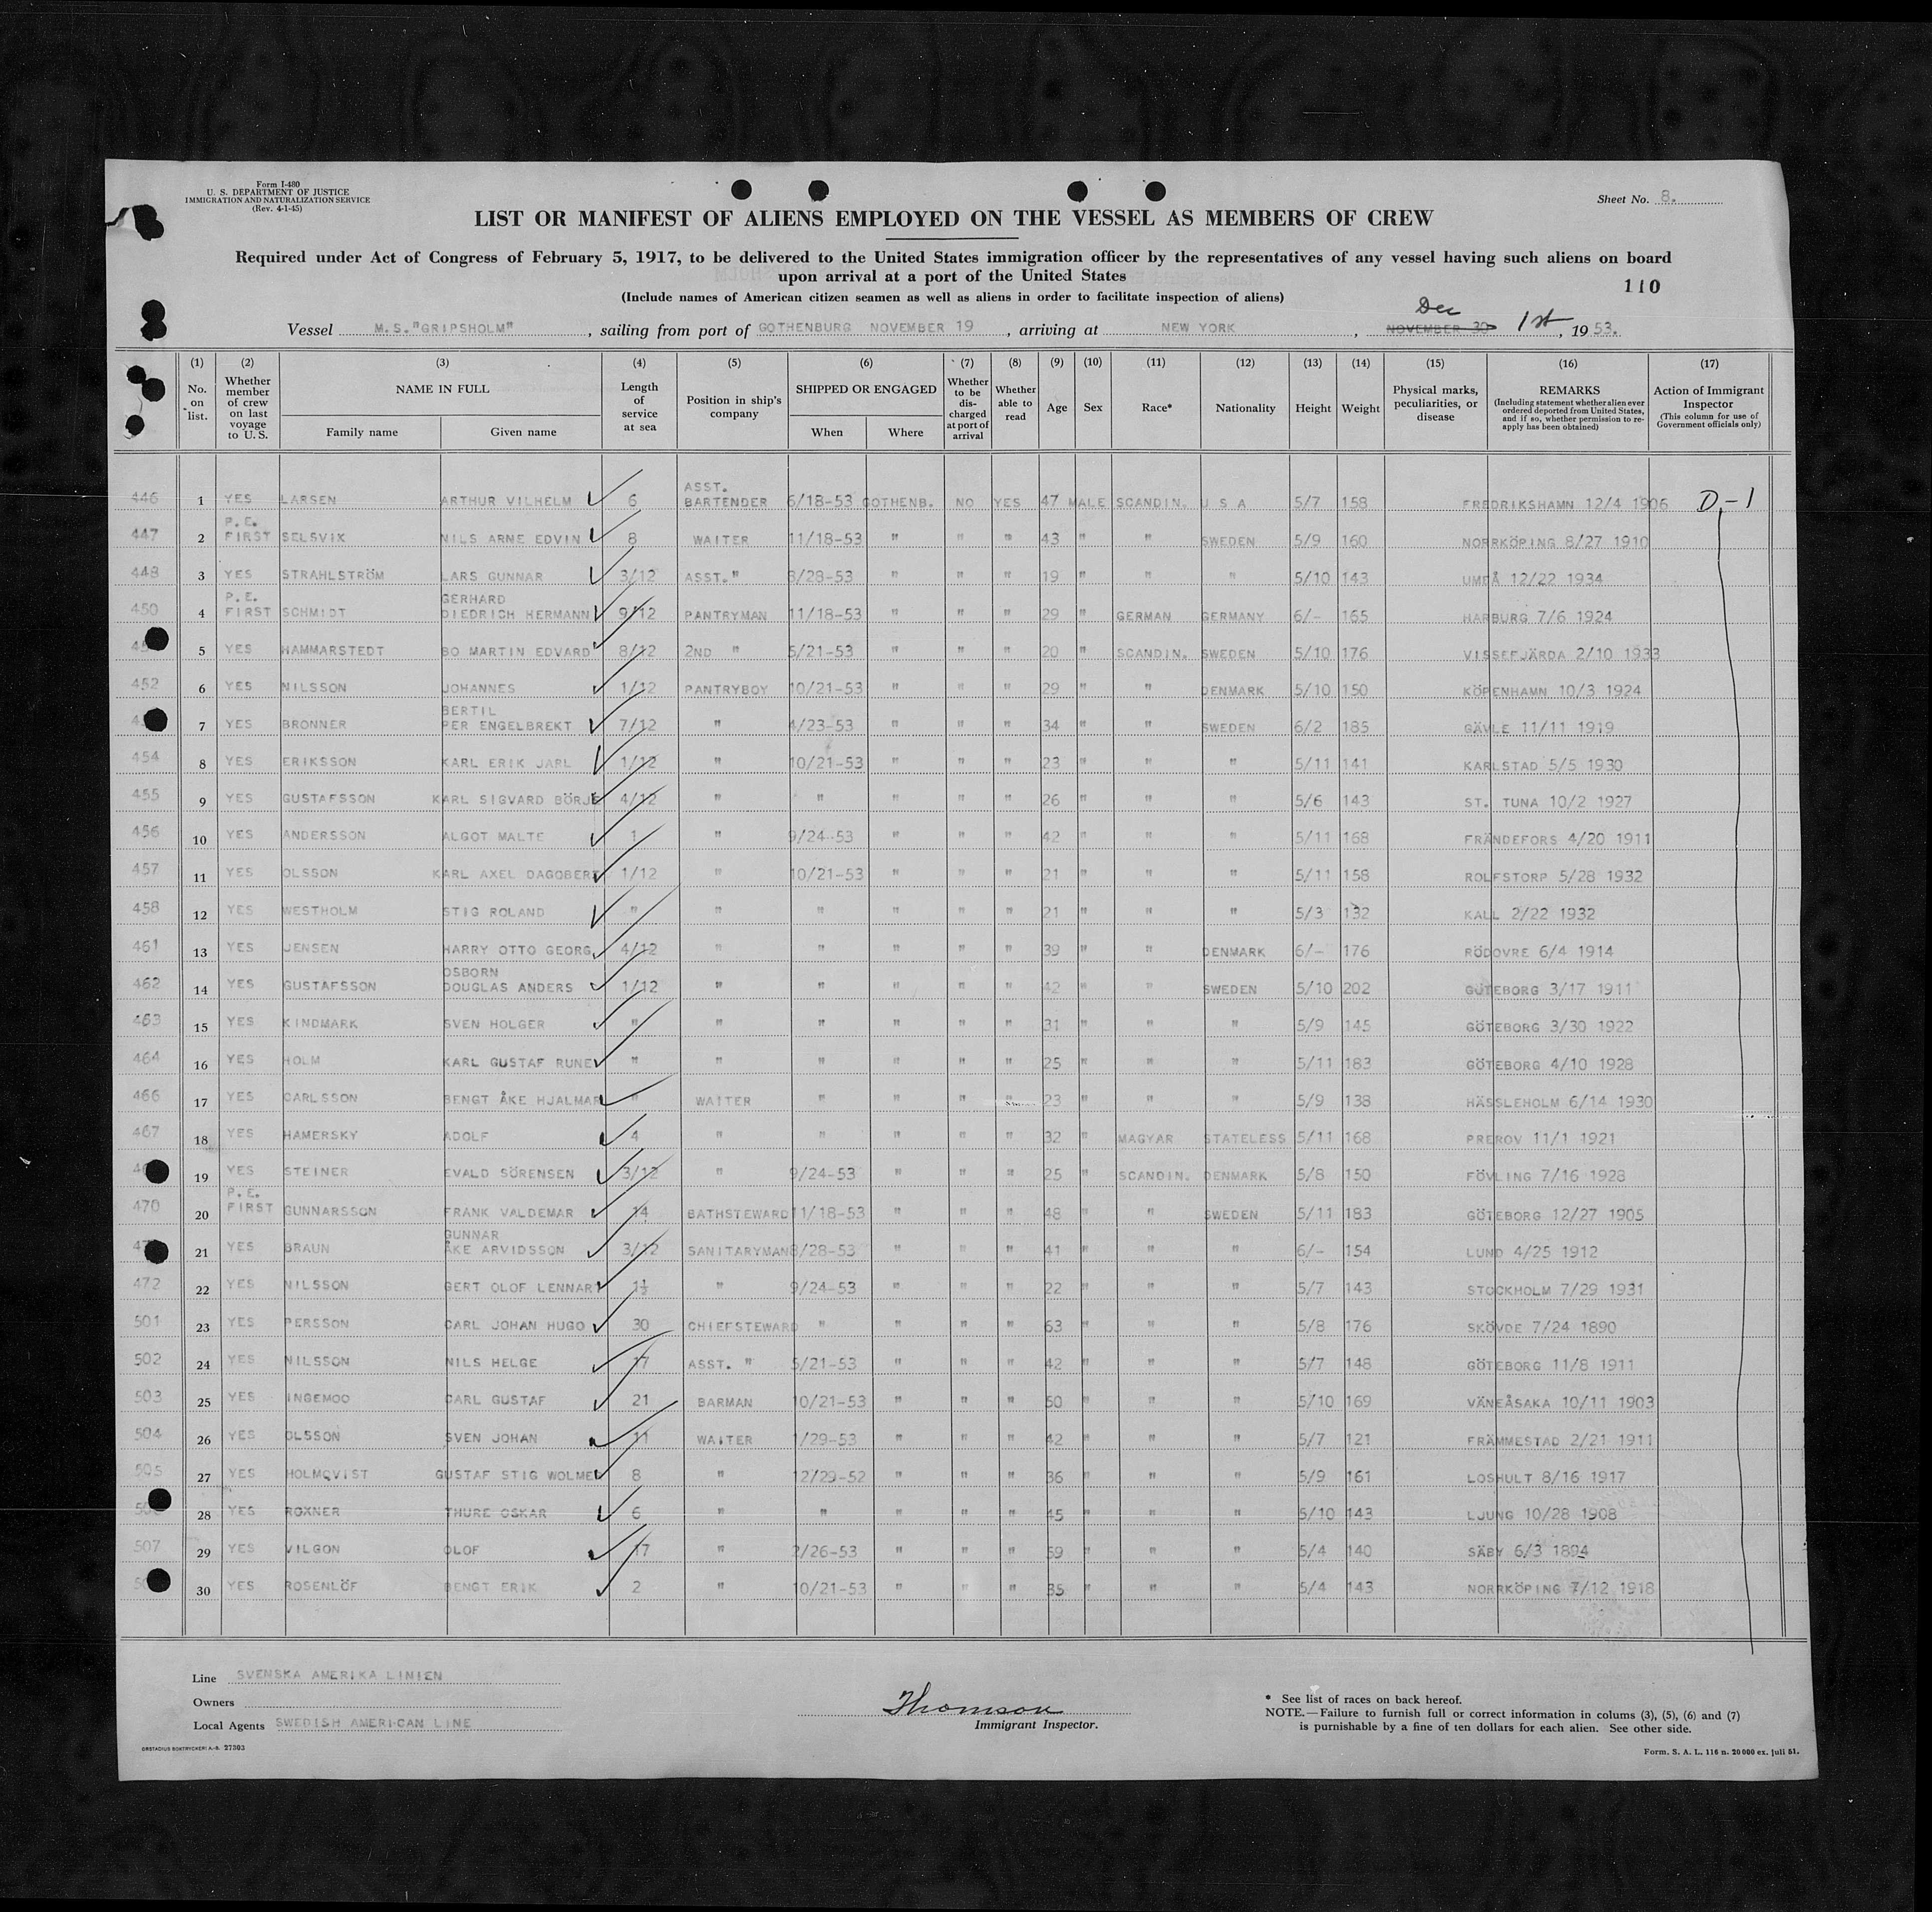 Form I-480
U. S. DEPARTMENT OF JUSTICE
IMMIGRATION AND NATURALIZATION SERVICE
(Rev. 4-1-45)
Sheet No. 8.
LIST OR MANIFEST OF ALIENS EMPLOYED ON THE VESSEL AS MEMBERS OF CREW
Required under Act of Congress of February 5, 1917, to be delivered to the United States immigration officer by the representatives of any vessel having such aliens on board
upon arrival at a port of the United States
(Include names of American citizen seamen as well as aliens in order to facilitate inspection of aliens)
110
Vessel M.S."GRIPSHOLM", sailing from port of GOTHENBURG NOVEMBER 19, arriving at NEW YORK, NOVEMBER 30 Dec 1st, 1953.
(1) No. on list.
(2) Whether member of crew on last voyage to U. S.
(3) NAME IN FULL Family name Given name
(4) Length of service at sea
(5) Position in ship's company
(6) SHIPPED OR ENGAGED When Where
(7) Whether to be discharged at port of arrival
(8) Whether able to read
(9) Age
(10) Sex
(11) Race*
(12) Nationality
(13) Height
(14) Weight
(15) Physical marks, peculiarities, or disease
(16) REMARKS (Including statement whether alien ever ordered deported from United States, and if so, whether permission to re-apply has been obtained)
(17) Action of Immigrant Inspector (This column for use of Government officials only)
446 1 YES LARSEN ARTHUR VILHELM 6 ASST. BARTENDER 6/18-53 GOTHENB. NO YES 47 MALE SCANDIN. U S A 5/7 158 FREDRIKSHAMN 12/4 1906 D-1
447 2 P.E. FIRST SELSVIK NILS ARNE EDVIN 8 WAITER 11/18-53 " " " 43 " " SWEDEN 5/9 160 NORRKÖPING 8/27 1910
448 3 YES STRAHLSTRÖM LARS GUNNAR 3/12 ASST." 8/28-53 " " " 19 " " " 5/10 143 UMEÅ 12/22 1934
450 4 P.E. FIRST SCHMIDT GERHARD DIEDRICH HERMANN 9/12 PANTRYMAN 11/18-53 " " " 29 " GERMAN GERMANY 6/- 165 HARBURG 7/6 1924
5 YES HAMMARSTEDT BO MARTIN EDVARD 8/12 2ND " 5/21-53 " " " 20 " SCANDIN. SWEDEN 5/10 176 VISSEFJÄRDA 2/10 1933
452 6 YES NILSSON JOHANNES 1/12 PANTRYBOY 10/21-53 " " " 29 " " DENMARK 5/10 150 KÖPENHAMN 10/3 1924
7 YES BRONNER BERTIL PER ENGELBREKT 7/12 " 4/23-53 " " " 34 " " SWEDEN 6/2 185 GÄVLE 11/11 1919
454 8 YES ERIKSSON KARL ERIK JARL 1/12 " 10/21-53 " " " 23 " " " 5/11 141 KARLSTAD 5/5 1930
455 9 YES GUSTAFSSON KARL SIGVARD BÖRJE 4/12 " " " " " 26 " " " 5/6 143 ST. TUNA 10/2 1927
456 10 YES ANDERSSON ALGOT MALTE 1 " 9/24-53 " " " 42 " " " 5/11 168 FRÄNDEFORS 4/20 1911
457 11 YES OLSSON KARL AXEL DAGOBERT 1/12 " 10/21-53 " " " 21 " " " 5/11 158 ROLFSTORP 5/28 1932
458 12 YES WESTHOLM STIG ROLAND " " " " " " 21 " " " 5/3 132 KALL 2/22 1932
461 13 YES JENSEN HARRY OTTO GEORG 4/12 " " " " " 39 " " DENMARK 6/- 176 RÖDOVRE 6/4 1914
462 14 YES GUSTAFSSON OSBORN DOUGLAS ANDERS 1/12 " " " " " 42 " " SWEDEN 5/10 202 GÖTEBORG 3/17 1911
463 15 YES KINDMARK SVEN HOLGER " " " " " " 31 " " " 5/9 145 GÖTEBORG 3/30 1922
464 16 YES HOLM KARL GUSTAF RUNE " " " " " " 25 " " " 5/11 183 GÖTEBORG 4/10 1928
466 17 YES CARLSSON BENGT ÅKE HJALMAR " WAITER " " " " 23 " " " 5/9 138 HÄSSLEHOLM 6/14 1930
467 18 YES HAMERSKY ADOLF 4 " " " " " 32 " MAGYAR STATELESS 5/11 168 PREROV 11/1 1921
19 YES STEINER EVALD SÖRENSEN 3/12 " 9/24-53 " " " 25 " SCANDIN. DENMARK 5/8 150 FÖVLING 7/16 1928
470 20 P.E. FIRST GUNNARSSON FRANK VALDEMAR 14 BATHSTEWARD 11/18-53 " " " 48 " " SWEDEN 5/11 183 GÖTEBORG 12/27 1905
21 YES BRAUN GUNNAR ÅKE ARVIDSSON 3/12 SANITARYMAN 8/28-53 " " " 41 " " " 6/- 154 LUND 4/25 1912
472 22 YES NILSSON GERT OLOF LENNART 1½ " 9/24-53 " " " 22 " " " 5/7 143 STOCKHOLM 7/29 1931
501 23 YES PERSSON CARL JOHAN HUGO 30 CHIEFSTEWARD " " " " 63 " " " 5/8 176 SKÖVDE 7/24 1890
502 24 YES NILSSON NILS HELGE 17 ASST. " 5/21-53 " " " 42 " " " 5/7 148 GÖTEBORG 11/8 1911
503 25 YES INGEMOO CARL GUSTAF 21 BARMAN 10/21-53 " " " 50 " " " 5/10 169 VÄNEÅSAKA 10/11 1903
504 26 YES OLSSON SVEN JOHAN 11 WAITER 1/29-53 " " " 42 " " " 5/7 121 FRÄMMESTAD 2/21 1911
505 27 YES HOLMQVIST GUSTAF STIG WOLMER 8 " 12/29-52 " " " 36 " " " 5/9 161 LOSHULT 8/16 1917
28 YES ROXNER THURE OSKAR 6 " " " " " 45 " " " 5/10 143 LJUNG 10/28 1908
507 29 YES VILGON OLOF 17 " 2/26-53 " " " 59 " " " 5/4 140 SÄBY 6/3 1894
30 YES ROSENLÖF BENGT ERIK 2 " 10/21-53 " " " 35 " " " 5/4 143 NORRKÖPING 7/12 1918
Line SVENSKA AMERIKA LINIEN
Owners
Local Agents SWEDISH AMERICAN LINE
ORSTADIUS BOKTRYCKERI A.-B. 27303
Thomson
Immigrant Inspector.
* See list of races on back hereof.
NOTE.—Failure to furnish full or correct information in colums (3), (5), (6) and (7)
is punishable by a fine of ten dollars for each alien. See other side.
Form. S. A. L. 116 n. 20 000 ex. juli 51.